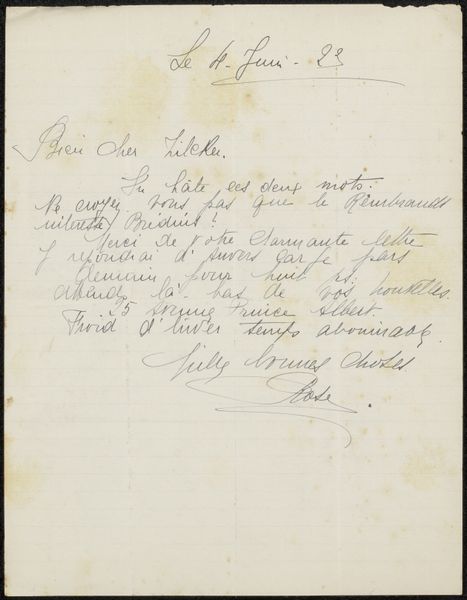 Le 4 - Juin - 23
Bien cher Zilcken.
En hâte ces deux mots.
Ne croyez vous pas que le Rembrandt
intéresse Bredius !
Merci de votre charmante lettre
j'y répondrai d'Anvers car je pars
demain pour huit js.
attends là-bas de vos nouvelles.
Avenue Prince Albert.
Froid d'hiver temps abominable
Mille bonnes choses
Rose.